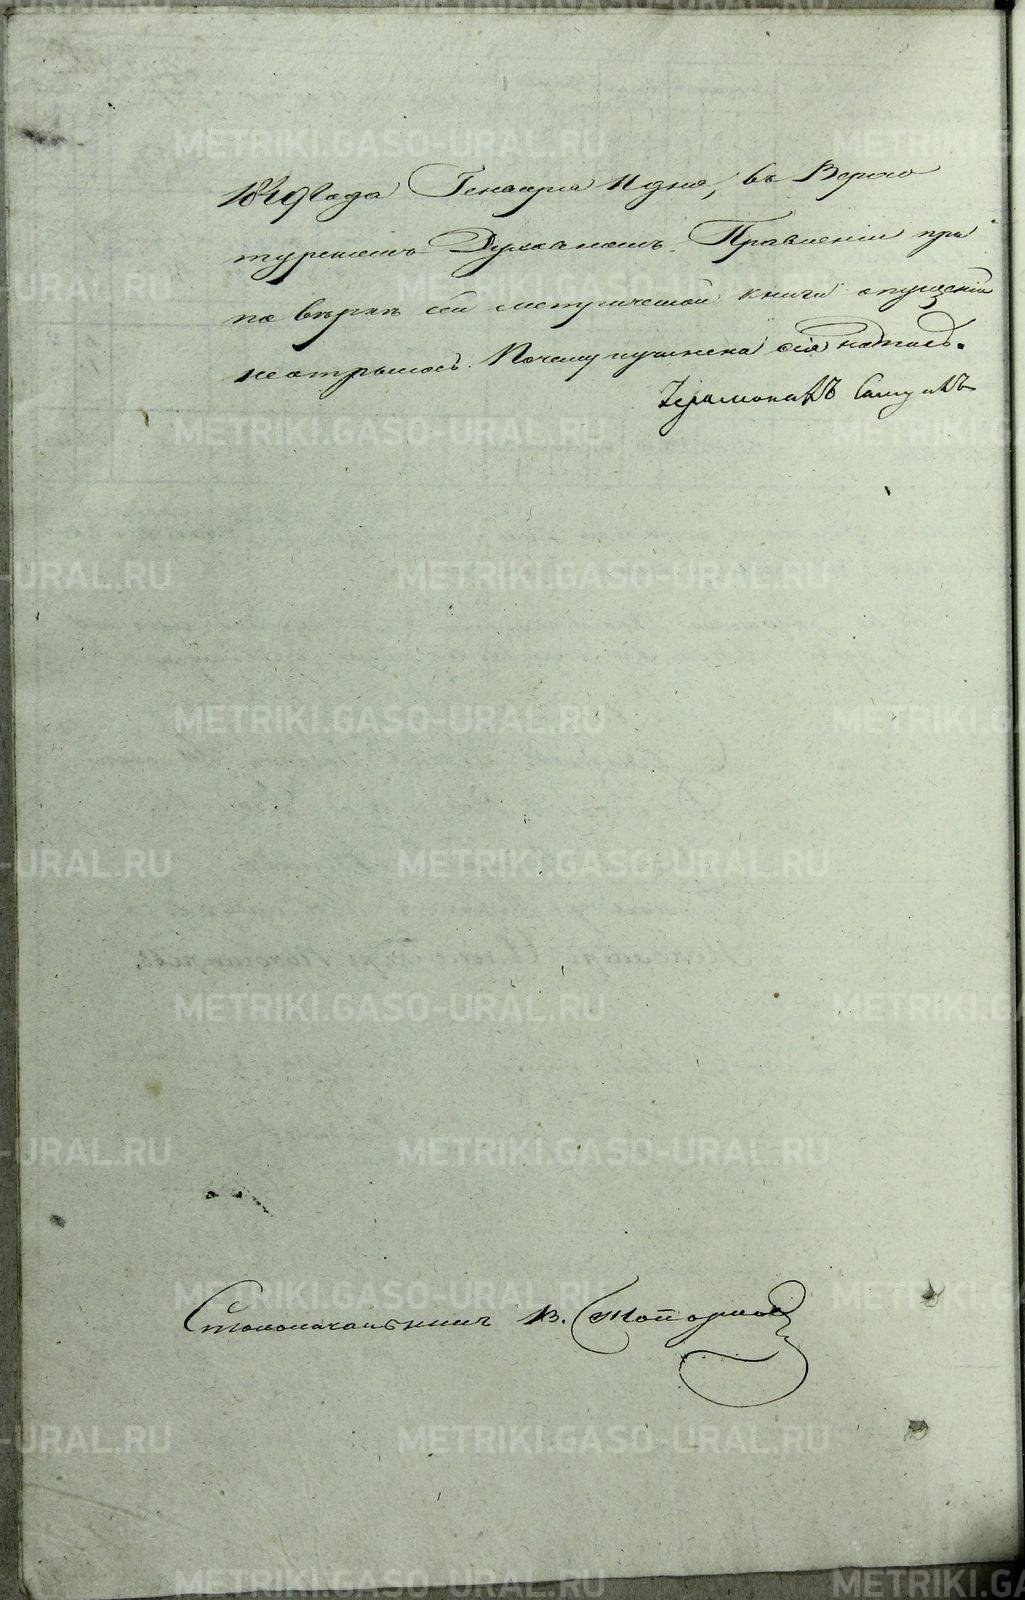 Генваря 11 дня, въ Верхо
турскомъ Духовномъ Правленіи при
по вѣркѣ сей метрической книги опущеній
не открылось. Почему и учинена сія надпись.
Іеромонахъ Самуилъ
Столоначальникъ В.
METRIKI.GASO-URAL.RU